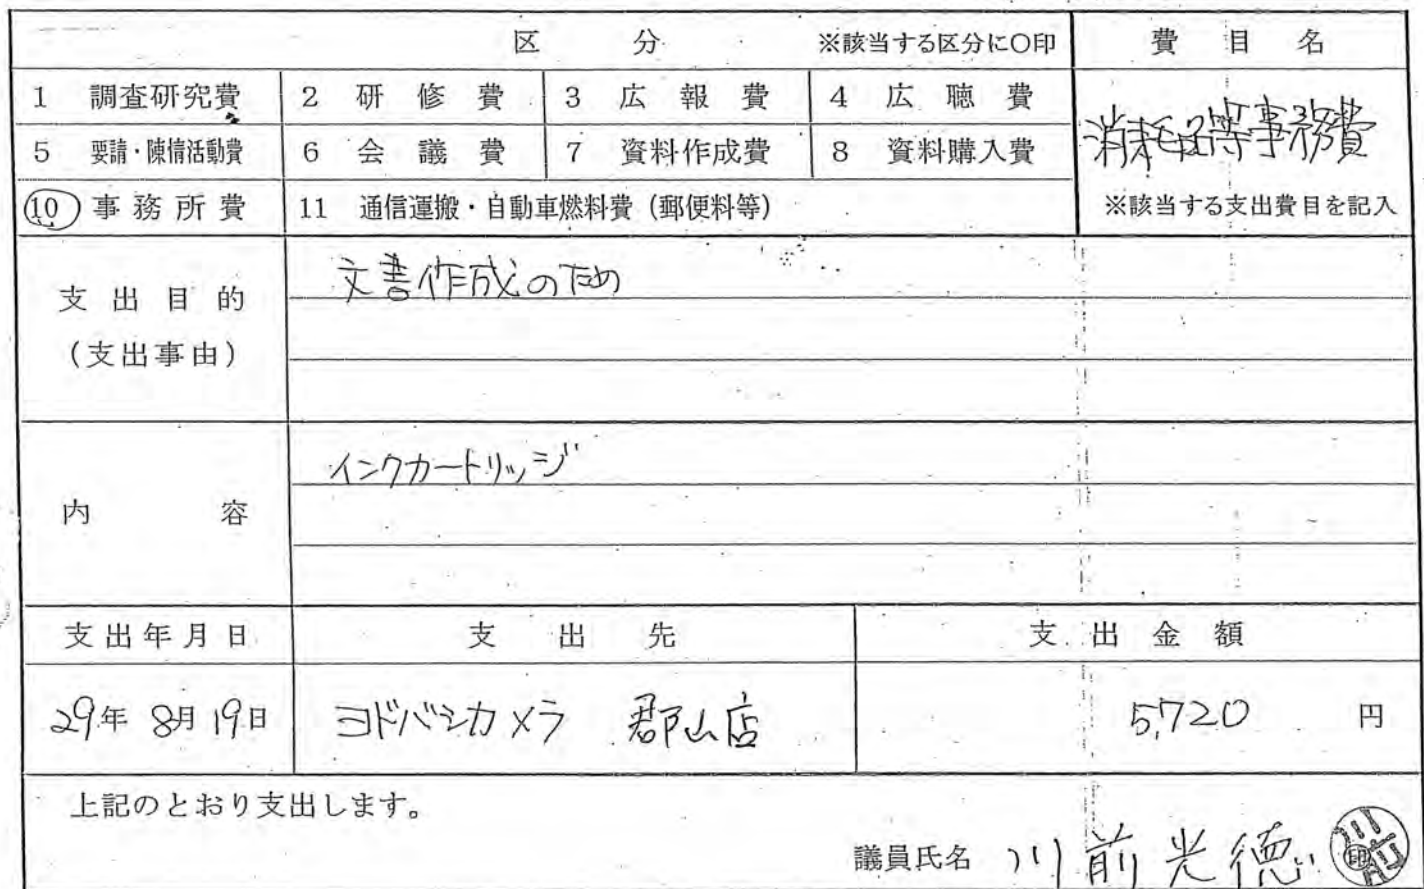 区 分 ※該当する区分に○印 費 目 名
1 調査研究費 2 研修費 3 広報費 4 広聴費
消耗品等事務費
5 要請・陳情活動費 6 会議費 7 資料作成費 8 資料購入費
10 事務所費 11 通信運搬・自動車燃料費(郵便料等) ※該当する支出費目を記入
支出目的
(支出事由)
文書作成のため
内 容
インクカートリッジ
支出年月日 支 出 先 支 出 金 額
29年 8月 19日 ヨドバシカメラ 郡山店 5,720 円
上記のとおり支出します。
議員氏名 川前光徳 印
川前